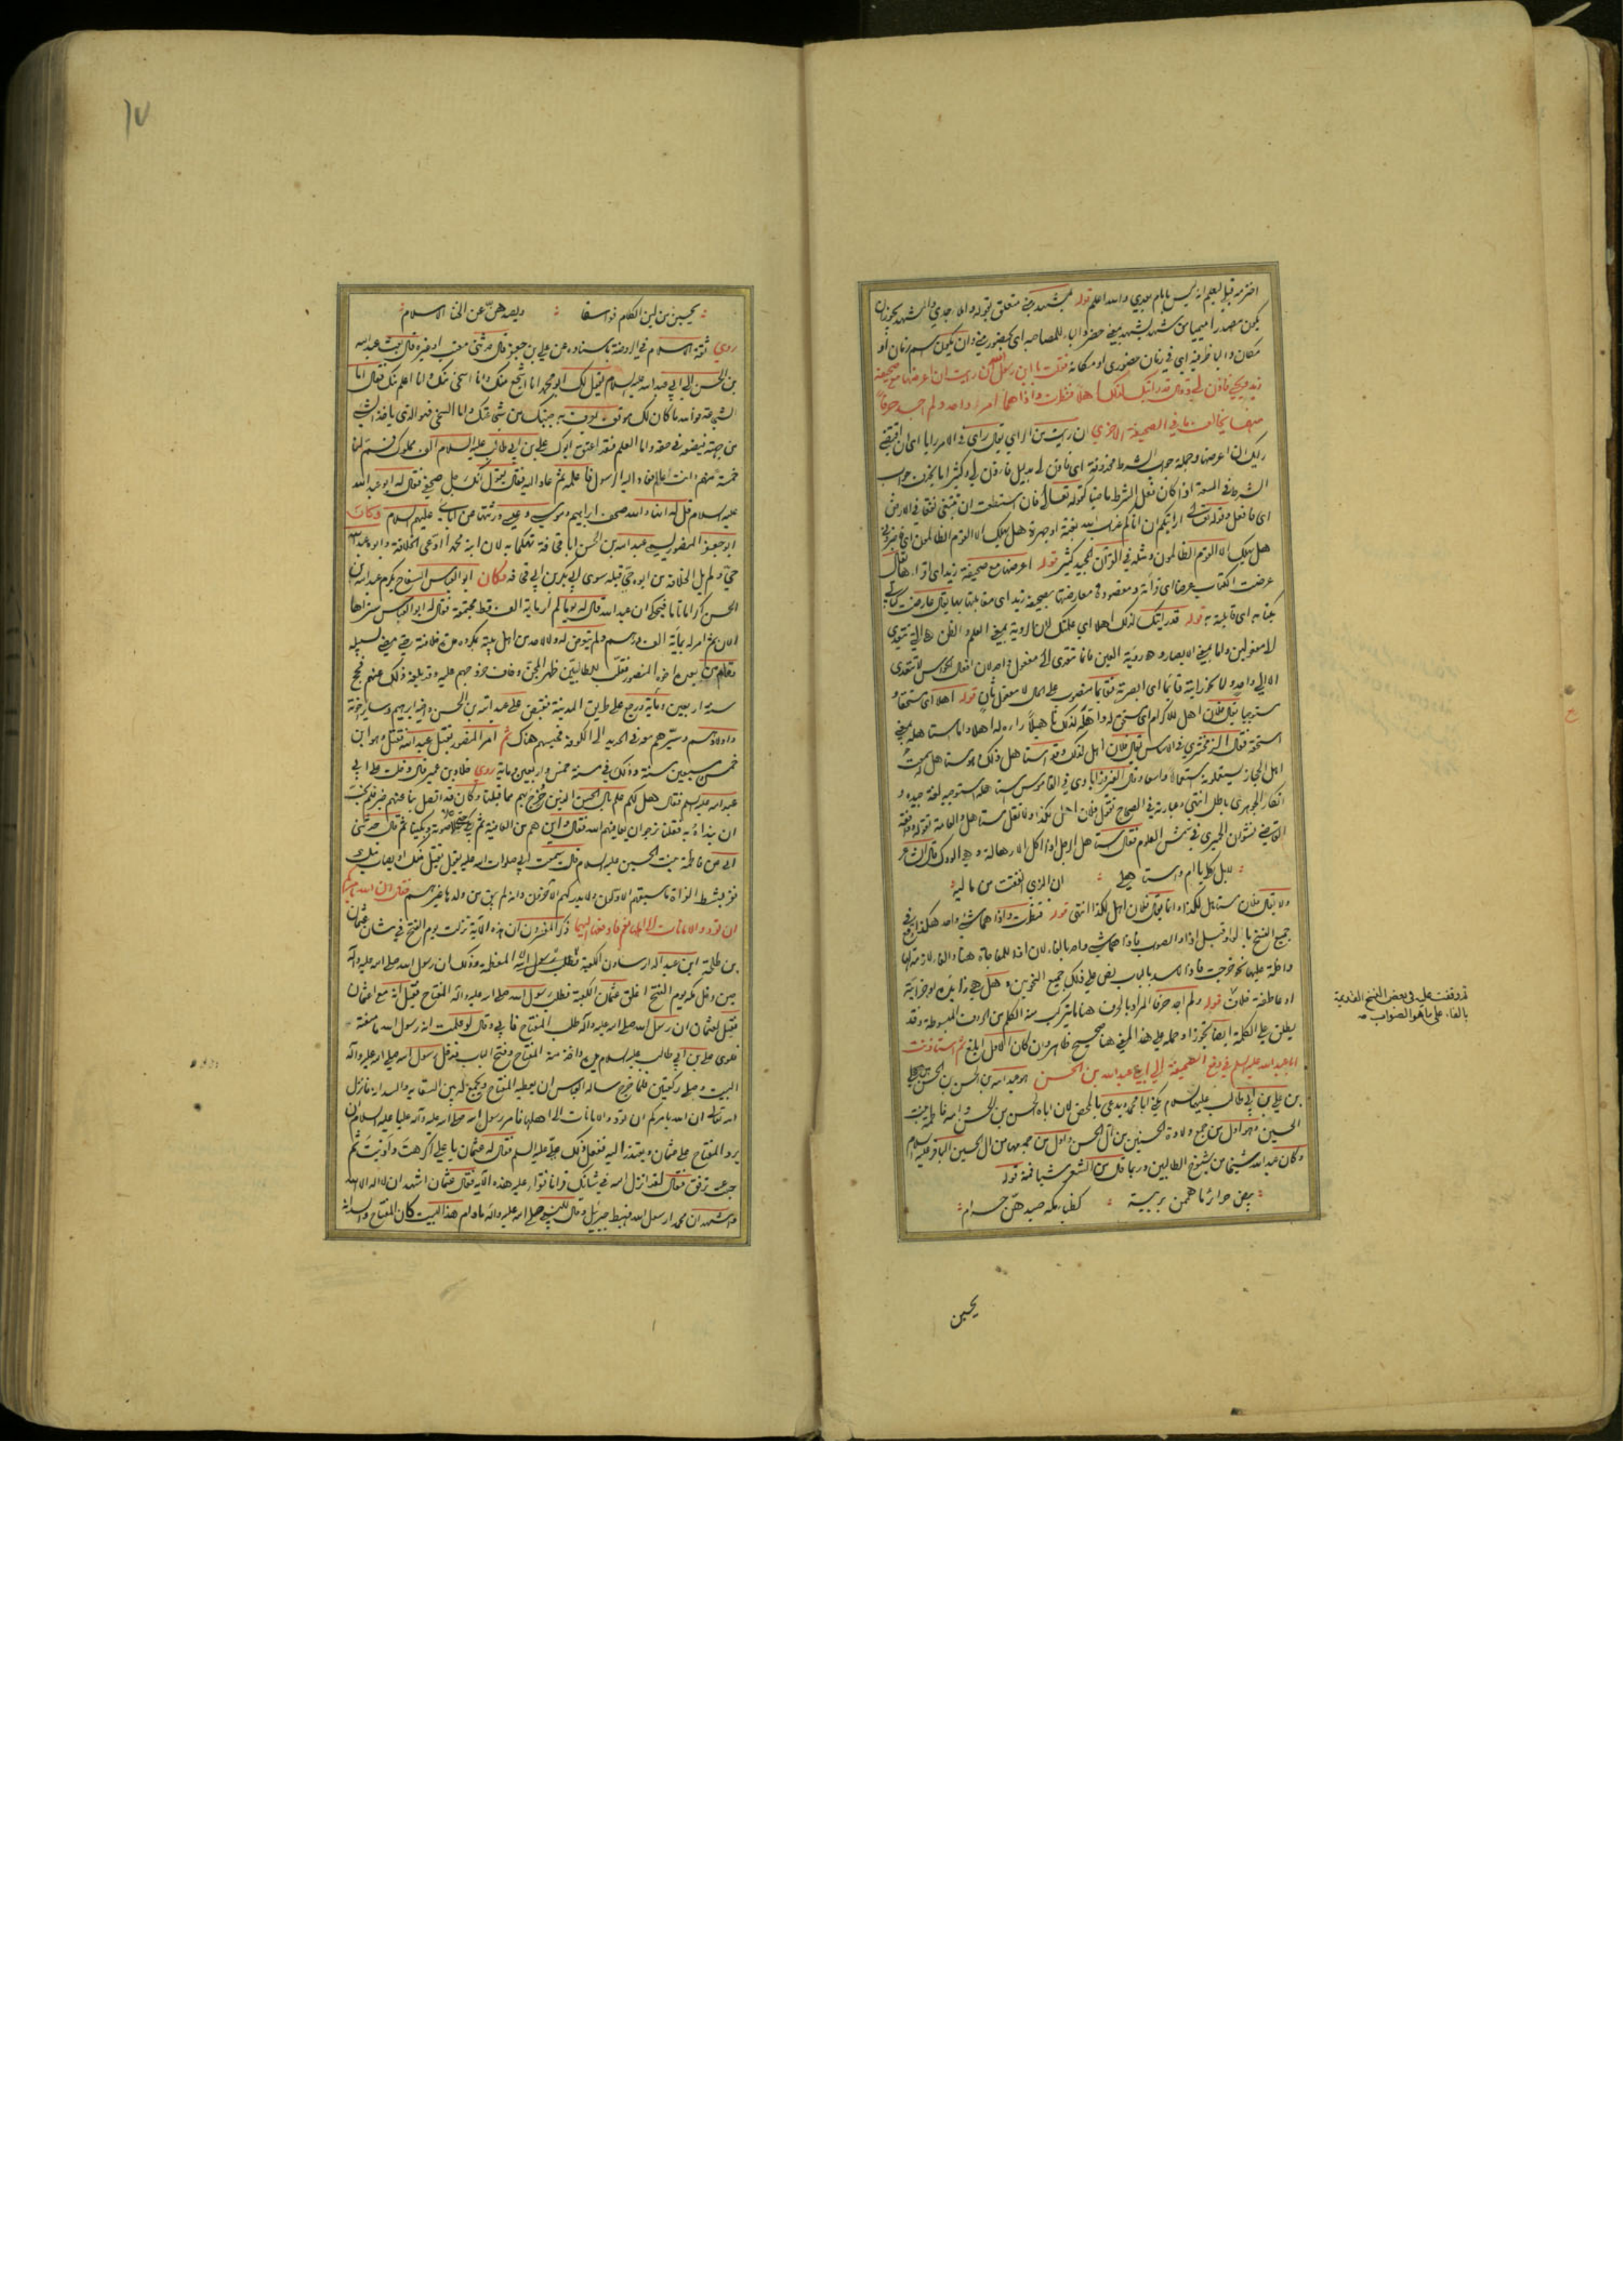 اخترمه قبل لعلم انه ليس بامام بعدي والله اعلم قوله بمشهد مني متعلق بقوله
يكون مصدرا ميميا من شهد يشهد بمعنى حضر والباء للمصاحبة اي بحضور مني وان يكون اسم زمان او
مكان والباء ظرفية اي في زمان حضوري او مكانه فقلت يا ابن رسول الله ان رايت ان اعرضها مع صحيفة
زيد ويحيى فاذن لي وقال قد رأيتك لذلك اهلا فنظرت واذا هما امر واحد ولم اجد حرفا
منها يخالف ما في الصحيفة الاخرى ان رايت من الراي يقال راى في الامر رايا اي ان اقتضى
رايك ان اعرضها وجملة جواب الشرط محذوفة اي فاذن لي بدليل فاذن لي وكثيرا ما يحذف جواب
الشرط في السعة اذا كان فعل الشرط ماضيا كقوله تعالى فان استطعت ان تبتغي نفقا في الارض
اي فافعل وقوله تعالى ارايتكم ان اتاكم عذاب الله بغتة او جهرة هل يهلك الا القوم الظالمون
هل يهلك الا القوم الظالمون ومثله في القرآن المجيد كثير قوله اعرضها مع صحيفة زيد اي اقراها يقال
عرضت الكتاب عرضا اي قرأته ومقصوده معارضتها بصحيفة زيد اي مقابلتها بها يقال عارضت كتابي
بكتابه اي قابلته به قوله قد رايتك لذلك اهلا اي علمتك لان الروية بمعنى العلم والظن هي التي تتعدى
لا مفعولين واما بمعنى الابصار وهو رؤية العين فانما تتعدى الى مفعول واحد لان افعال الحواس لا تتعدى
الا الى واحد ولا يجوز رايته قائما اي ابصرته فقائما منصوب على الحال لا مفعول ثان قوله اهلا اي مستحقا و
مستوجبا يقال فلان اهل للاكرام اي مستحق له واهله لذلك تاهيلا راه له اهلا واما استاهله بمعنى
استحقه فقال الزمخشري في الاساس تقول فلان اهل لذلك وقد استاهل ذلك وهو مستاهل له سمعت
اهل الحجاز يستعملونه استعمالا واسعا وقال الفيروزابادي في القاموس استاهله استوجبه لغة جيدة و
انكار الجوهري باطل انتهى وعبارته في الصحاح تقول فلان اهل لكذا ولا تقل مستاهل والعامة تقوله ووافقه
القاضي نشوان الحميري في شمس العلوم فقال استاهل الرجل اذا اكل الاهالة وهي الودك قال الشاعر
لا بل كلي يا ام واستاهلي ان الذي انفقت من ماليه
ولا يقال فلان مستاهل لكذا وانما يقال فلان اهل لكذا انتهى قوله فنظرت واذا هما شيء واحد هكذا وقع في
جميع النسخ بالواو قبل اذا والصواب فاذا هما شيء واحد بالفاء لان اذا للمفاجاة هنا والفاء لازمة لها
داخلة عليها نحو خرجت فاذا الاسد بالباب نص على ذلك جميع النحويين وهل هي زائدة او جزائية
او عاطفة خلاف قوله ولم اجد حرفا المراد بالحرف هنا ما يتركب منه الكلم من الحروف المبسوطة وقد
يطلق على الكلمة ايضا تجوزا وحمله على هذا المعنى هنا صحيح ظاهر وان كان الاول ابلغ ثم استاذنت
ابا عبد الله عليه السلام في دفع الصحيفة الى ابني عبد الله بن الحسن هو عبد الله بن الحسن بن الحسن بن علي
بن علي بن ابي طالب عليهما السلام يكنى ابا محمد ويدعى بالمحض لان اباه الحسن بن الحسن وامه فاطمة بنت
الحسين وهو اول من جمع ولادة الحسنين من آل الحسن واول من جمعها من ال الحسين الباقر عليه السلام
وكان عبد الله شيخا من شيوخ الطالبيين وربما قال من الشعر شيا فمنه قوله
بيض حرائر ما هممن بريبة كظباء مكة صيدهن حرام
يحسبن
قد وقفت عليه في بعض النسخ القديمة
بالفاء على ما هو الصواب منه
١٧
يحسبن من لين الكلام فواسقا ويصدهن عن الخنا الاسلام
روى ثقة الاسلام في الروضة باسناده عن علي بن جعفر قال حدثني معتب او غيره قال بعث عبد الله
بن الحسن الى ابي عبد الله عليه السلام يقول لك ابو محمد انا اشجع منك وانا اسخى منك وانا اعلم منك فقال اما
الشجاعة فوالله ما كان لك موقف يعرف به جبنك من شجاعتك واما السخي فهو الذي ياخذ الشيء
من جهته فيضعه في حقه واما العلم فقد اعتق ابوك علي بن ابي طالب عليه السلام الف مملوك فسم لنا
خمسة منهم وانت عالم فعاد اليه الرسول فاعلمه ثم عاد اليه فقال يقول لك انك رجل صحفي فقال له ابو عبد الله
عليه السلام قل له اي والله صحف ابراهيم وموسى وعيسى ورثتها عن آبائي عليهم السلام وكان
ابو جعفر المنصور يسمي عبد الله بن الحسن ابا قحافة تهكما به لان ابنه محمدا ادعى الخلافة وابوه عبد الله
حي ولم يل الخلافة من ابوه حي قبله سوى ابي بكر بن ابي قحافة وكان ابو العباس السفاح يكرم عبد الله بن
الحسن اكراما تاما فيحكى ان عبد الله قال له يوما لم أر ماية الف قط مجتمعة فقال له ابو العباس ستراها
الان ثم امر له بمأية الف درهم ولم يتعرض له ولا لاحد من اهل بيته بمكروه مدة خلافته حتى مضى لسبيله
وقام من بعده اخوه المنصور فقلب للطالبيين ظهر المجن وخاف خروجهم عليه وقد بلغه ذلك عنهم فحج
سنة اربعين ومأية ورجع على طريق المدينة فقبض على عبد الله بن الحسن واخيه ابراهيم وساير اخوته
واولادهم وسيرهم معه في الحديد الى الكوفة فحبسهم هناك ثم امر المنصور بقتل عبد الله فقتل وهو ابن
خمس وسبعين سنة وذلك في سنة خمس واربعين ماية روى خلاد بن عمير قال دخلت على ابي
عبد الله عليه السلام فقال هل لكم علم بآل الحسن الذين خرج بهم مما قبلنا وكان قد اتصل بنا عنهم خبر فلم نحب
ان نبداه به فقلنا نرجو ان يعافيهم الله فقال واين هم من العافية ثم بكى حتى علا صوته وبكينا ثم قال حدثني
ابي عن فاطمة بنت الحسين عليه السلام قالت سمعت ابي صلوات الله عليه يقول يقتل منك او يصاب منك
نفر بشط الفرات ما سبقهم الاولون ولا يدركهم الاخرون وانه لم يبق من ولدها غيرهم فقال ان الله يامركم
ان تودوا الامانات الى اهلها نعم فادفعها اليهما ذكر المفسرون ان هذه الآية نزلت يوم الفتح في شان عثمان
بن طلحة ابن عبد الدار سادن الكعبة وذلك ان رسول الله صلى الله عليه وآله
حين دخل مكة يوم الفتح اغلق عثمان الكعبة فطلب رسول الله صلى الله عليه وآله المفتاح فقيل انه مع عثمان
فقيل لعثمان ان رسول الله صلى الله عليه وآله طلب المفتاح فابى وقال لو علمت انه رسول الله ما منعته
فلوى علي بن ابي طالب عليه السلام يده واخذ منه المفتاح وفتح الباب فدخل رسول الله صلى الله عليه وآله
البيت وصلى ركعتين فلما خرج ساله العباس ان يعطيه المفتاح ويجمع له بين السقاية والسدانة فانزل
الله تعالى ان الله يامركم ان تؤدوا الامانات الى اهلها فامر رسول الله صلى الله عليه وآله عليا عليه السلام ان
يرد المفتاح على عثمان ويعتذر اليه ففعل ذلك علي عليه السلم فقال له عثمان يا علي اكرهت وآذيت ثم
جئت ترفق فقال لقد انزل الله في شانك قرانا فقرا عليه هذه الآية فقال عثمان اشهد ان لا اله الا الله
واشهد ان محمدا رسول الله فهبط جبرئيل وقال للنبي صلى الله عليه وآله مادام هذا البيت كان المفتاح والسدانة